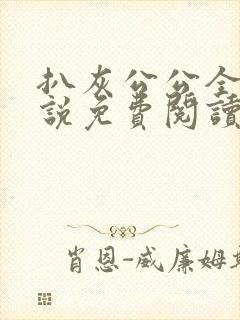 扒灰公公全
説免費閱讀
肖恩-威廉姆斯